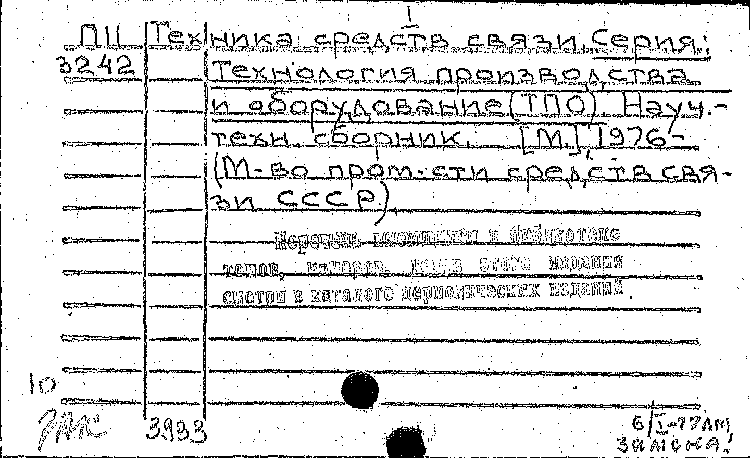 I
П11 Техника средств связи. Серия:
3242 Технология производства
и оборудование (ТПО) Науч.-
техн. сборник. [М.], 1976-
(М-во пром-сти средств свя-
зи СССР)
Перечень имеющихся в библиотеке
томов, номеров, этого издания
смотри в каталоге периодических изданий
10
3933
6/I-77
замена!